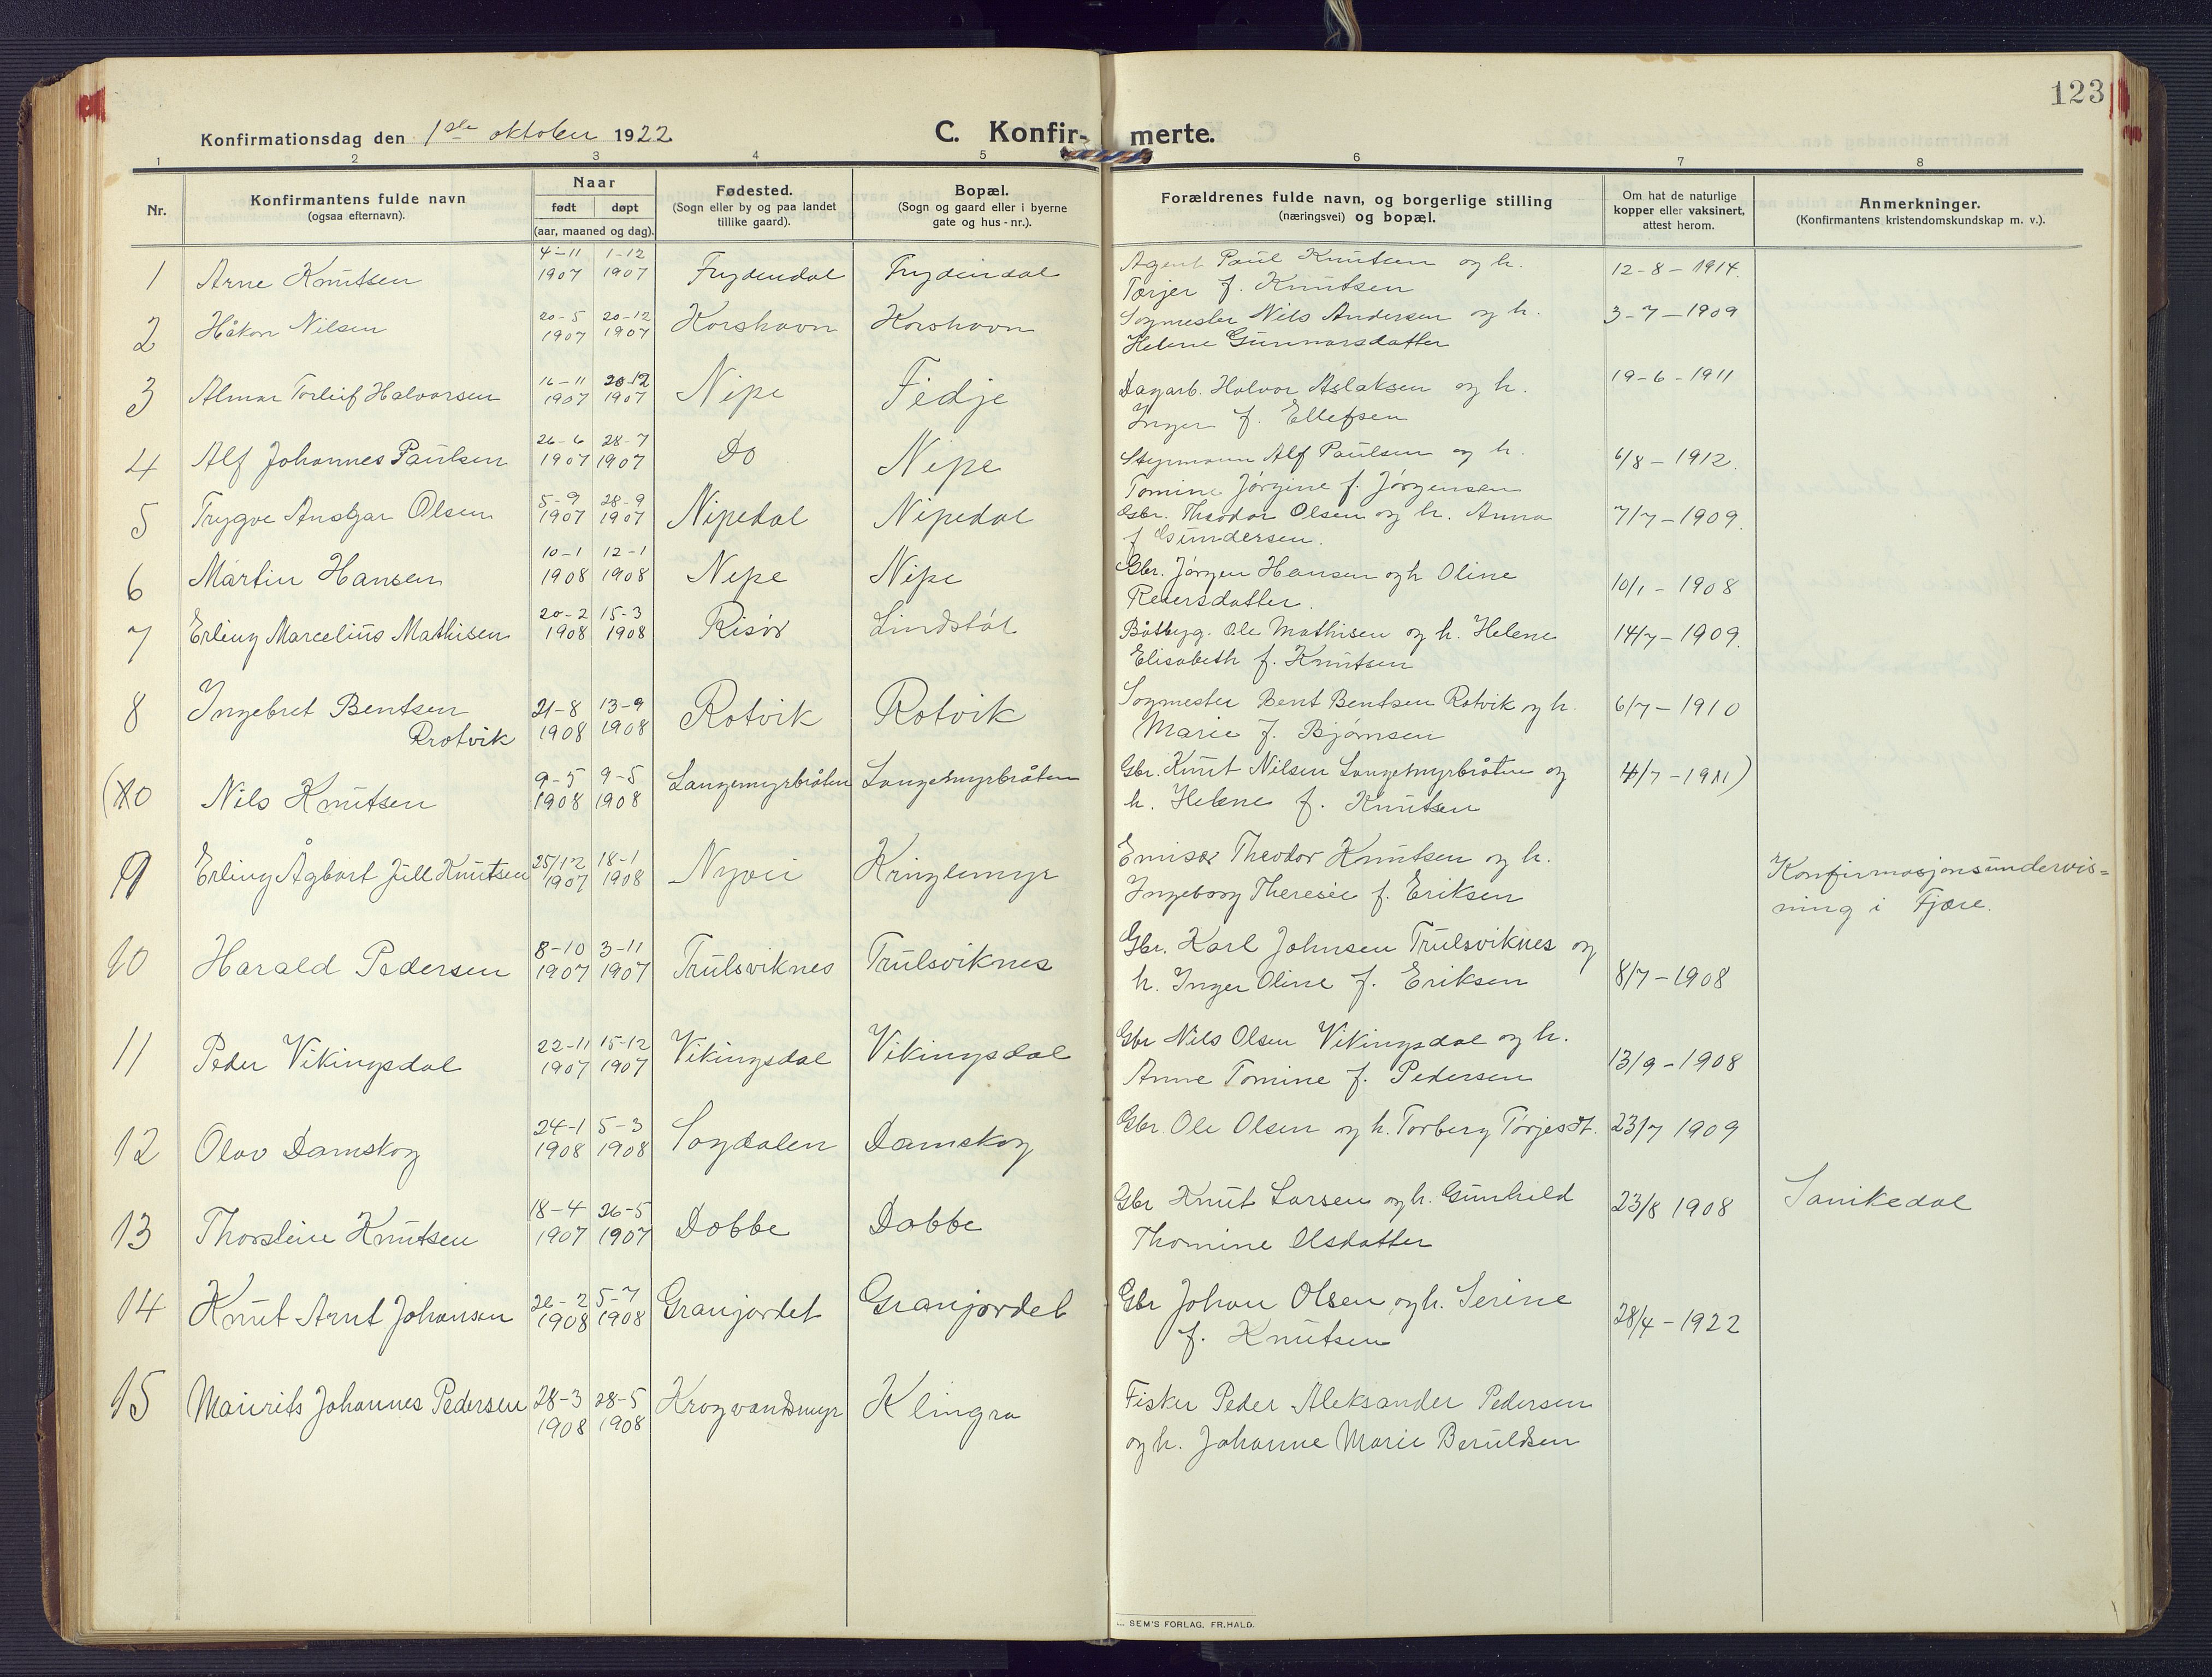 123
Konfirmationsdag den 1ste oktober 1922
C. Konfir- merte.
1 2 3 4 5 6 7 8
Nr.
Konfirmantens fulde navn
(ogsaa efternavn).
Naar
født døpt
(aar, maaned og dag).
Fødested.
(Sogn eller by og paa landet
tillike gaard).
Bopæl.
(Sogn og gaard eller i byerne
gate og hus-nr.).
Forældrenes fulde navn, og borgerlige stilling
(næringsvei) og bopæl.
Om hat de naturlige
kopper eller vaksinert,
attest herom.
Anmerkninger.
(Konfirmantens kristendomskundskap m. v.).
1 Arne Knutsen 4-11 1907 1-12 1907 Frydendal Frydendal Agent Paul Knutsen og h. 12-8-1914.
Torjer f. Knutsen
2 Håkon Nilsen 20-5 1907 20-12 1907 Korshavn Korshavn Sogmester Nils Andersen og h. 3-7-1909
Helene Gunnarsdatter
3 Almar Torleif Halvorsen 16-11 1907 20-12 1907 Nipe Fidje Dagarb. Halvor Aslaksen og h. 19-6-1911
Inger f. Ellefsen
4 Alf Johannes Paulsen 26-6 1907 28-7 1907 Do Nipe Styrmann Alf Paulsen og h. 6/8-1912.
Tomine Jörgine f. Jörgensen
5 Trygve Ansgar Olsen 5-9 1907 28-9 1907 Nipedal Nipedal Gbr. Theodor Olsen og h. Anna 7/7-1909.
f Gundersen.
6 Martin Hansen 10-1 1908 12-1 1908 Nipe Nipe Gbr. Jörgen Hansen og h Oline 10/1-1908
Reiersdatter.
7 Erling Marcelius Mathisen 20-2 1908 15-3 1908 Risör Lindstöl Båtbyg. Ole Mathisen og h. Helene 14/7-1909.
Elisabeth f. Knutsen
8 Ingebret Bentsen Rrotvik 21-8 1908 13-9 1908 Rotvik Rotvik Sogmester Bent Bentsen Rotvik og h. 6/7-1910
Marie f. Bjørnsen
(10 Nils Knutsen 9-5 1908 9-5 1908 Langemyrbråten Langemyrbråten Gbr. Knut Nilsen Langemyrbråten og 4/7-1911)
h. Helene f. Knutsen
9 Erling Ågbart Jull Knutsen 25/12 1907 18-1 1908 Nyvei Kringlemyr Emisær Theodor Knutsen og h. Konfirmasjonsundervis=
Ingeborg Theresie f. Eriksen ning i Fjære.
10 Harald Pedersen 8-10 1907 3-11 1907 Trulsviknes Trulsviknes Gbr. Karl Johnsen Trulsviknes og
h. Inger Oline f. Eriksen 8/7-1908
11 Peder Vikingsdal 22-11 1907 15-12 1907 Vikingsdal Vikingsdal Gbr Nils Olsen Vikingsdal og h. 13/9-1908
Anne Tomine f. Pedersen
12 Olav Damskog 24-1 1908 5-3 1908 Sogdalen Damskog Gbr. Ole Olsen og h. Torberg Törjesdt. 23/7 1909
13 Thorstein Knutsen 18-4 1907 26-5 1907 Dobbe Dobbe Gbr Knut Larsen og h. Gunhild 23/8 1908 Sanikedal
Thomine Olsdatter
14 Knut Arnt Johansen 26-2 1908 5-7 1908 Granjordet Granjordet Gbr Johan Olsen og h. Serine 28/4-1922
f. Knutsen
15 Maurits Johannes Pedersen 28-3 1908 28-5 1908 Krogvandsmyr Klingra Fisker Peder Aleksander Pedersen
og h. Johanne Marie Beruldsen
SEM'S FORLAG, FR.HALD.